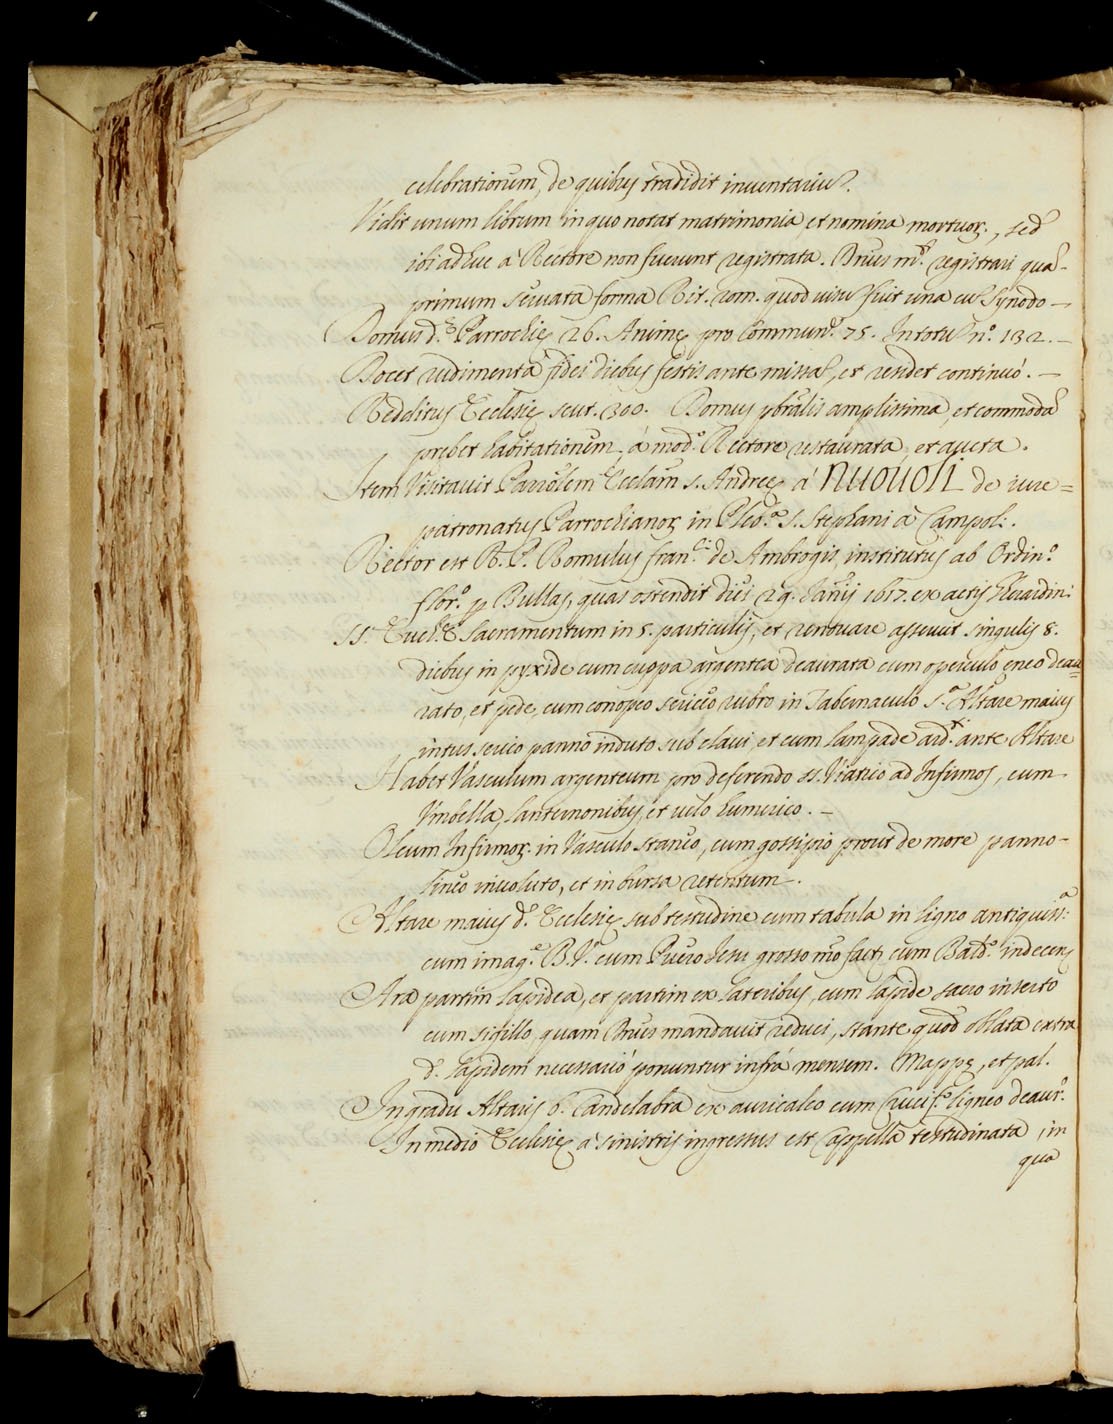 celebrationum, de quibus tradidit inventariu.
Vidit unum librum in quo notat matrimonia, et nomina mortuoꝝ., sed
ibi adhuc a Rectore non fuerunt registrata. registrari qua-
primum servata forma Rit. rom. quod visu fuit una cu Synodo —
Domus d.ᵉ Parrochię 26. Animę pro Commun.ᵉ 75. In totu n.º 132. —
Docet rudimenta fidei diebus festis ante missa, et rendet continuó. —
Redditus Ecclesię scut. 300. Domus pbralis amplissima, et commoda
prębet habitationem, á mod.º Rectore restaurata, et aucta.
Item Visitavit Parrolem Ecclam s. Andreę á Nuouoli de iure=
patronatus Parrochianoꝝ in Pleb.ª S. Stephani á Campoli:
Rector est R. P. Romulus Fran.ci de Ambrogis, institutus ab Ordin.º
flor.º p Bullas, quas ostendit 1617. ex actis
SS. Euch.ę Sacramentum in 5. particulis, et renovare asseruit singulis 8.
diebus in pyxide cum cuppa argentea deaurata cum operculo ęneo deau=
rato, et pede, cum conopeo sericeo rubro in Tabernaculo s.ª Altare maius
intus serico panno induto sub clavi, et cum lampade ard.ᵗⁱ ante Altare
Habet Vasculum argenteum pro deferendo ss. Viatico ad Infirmos, cum
Umbella, lanternonibus, et velo humerico. —
Oleum Infirmoꝝ. in Vasculo staneo, cum gossipio prout de more panno-
lineo involuto, et in bursa retentum.
Altare maius d.ᵉ Ecclesię sub testudine cum tabula in ligno antiquiss.ª:
cum imag.ᵉ B. V. cum Puero Jesu grosso mo facti, cum Bald.º indecens
Ara partim lapidea, et partim ex lateribus, cum lapide sacro inserto
cum sigillo, quam mandavit reduci, stante, quod oblata extra
d. lapidem necessarió ponuntur infrá mensem. Mappę, et pal.
In gradu Altaris 6. Candelabra ex auricalco cum Crucif.º ligneo deaur.º
In medio Ecclesię a sinistris ingressus est Cappella testudinata, in
qua